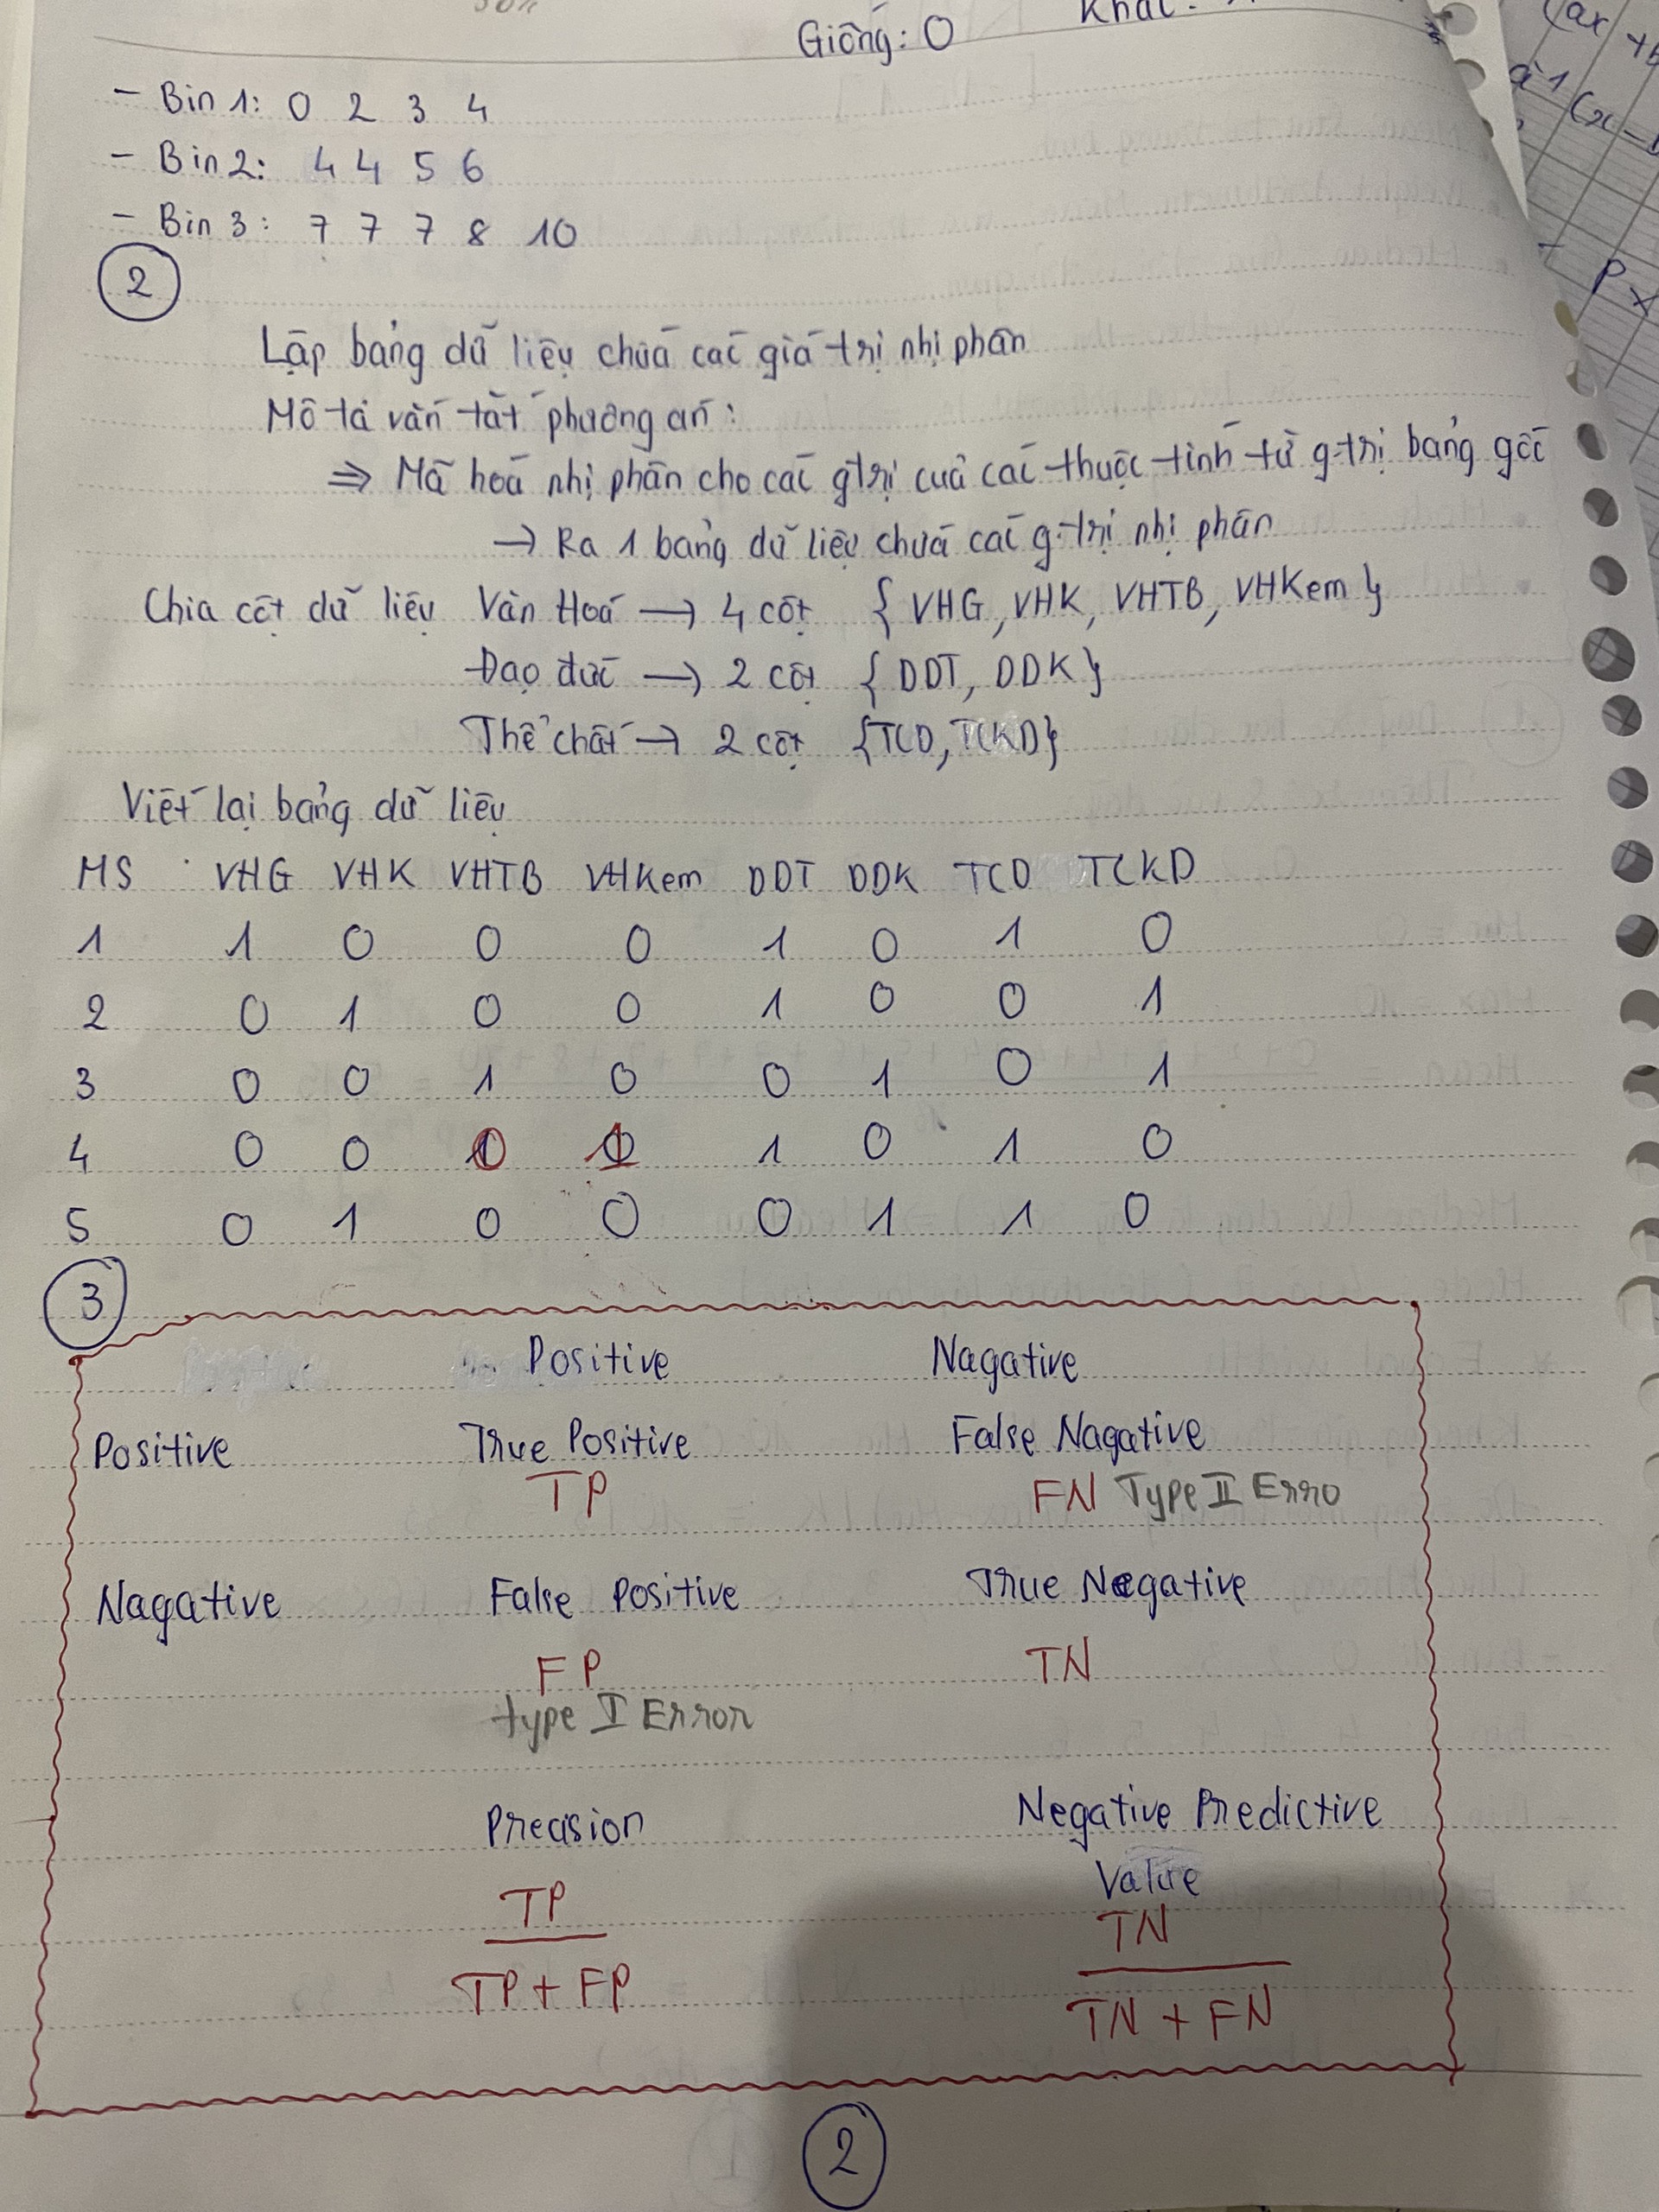 Giống: 0
- Bin 1: 0 2 3 4
- Bin 2: 4 4 5 6
- Bin 3: 7 7 7 8 10
2
Lập bảng dữ liệu chứa các giá trị nhị phân
Mô tả vắn tắt phương án:
⇒ Mã hoá nhị phân cho các gtrị của các thuộc tính từ g.trị bảng gốc
→ Ra 1 bảng dữ liệu chứa các g.trị nhị phân
Chia cột dữ liệu Văn Hoá → 4 cột { VHG, VHK, VHTB, VHKem }
Đạo đức → 2 cột { DDT, DDK }
Thể chất → 2 cột {TCD, TCKD}
Viết lại bảng dữ liệu
MS VHG VHK VHTB VHKem DDT DDK TCD TCKD
1 1 0 0 0 1 0 1 0
2 0 1 0 0 1 0 0 1
3 0 0 1 0 0 1 0 1
4 0 0 0 1 1 0 1 0
5 0 1 0 0 0 1 1 0
3
Positive Nagative
Positive True Positive False Nagative
TP FN Type II Erro
Nagative False Positive True Negative
FP TN
type I Error
Precision Negative Predictive
Value
TP TN
TP + FP TN + FN
2